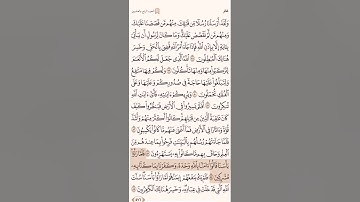 غافر الجزء الرابع والعشرون
وَلَقَدْ أَرْسَلْنَا رُسُلًا مِّن قَبْلِكَ مِنْهُم مَّن قَصَصْنَا عَلَيْكَ
وَمِنْهُم مَّن لَّمْ نَقْصُصْ عَلَيْكَ وَمَا كَانَ لِرَسُولٍ أَن يَأْتِىَ
بِـَٔايَةٍ إِلَّا بِإِذْنِ ٱللَّهِ فَإِذَا جَآءَ أَمْرُ ٱللَّهِ قُضِىَ بِٱلْحَقِّ وَخَسِرَ
هُنَالِكَ ٱلْمُبْطِلُونَ ٧٨ ٱللَّهُ ٱلَّذِى جَعَلَ لَكُمُ ٱلْأَنْعَٰمَ
لِتَرْكَبُوا۟ مِنْهَا وَمِنْهَا تَأْكُلُونَ ٧٩ وَلَكُمْ فِيهَا مَنَٰفِعُ
وَلِتَبْلُغُوا۟ عَلَيْهَا حَاجَةً فِى صُدُورِكُمْ وَعَلَيْهَا وَعَلَى
ٱلْفُلْكِ تُحْمَلُونَ ٨٠ وَيُرِيكُمْ ءَايَٰتِهِۦ فَأَىَّ ءَايَٰتِ ٱللَّهِ
تُنكِرُونَ ٨١ أَفَلَمْ يَسِيرُوا۟ فِى ٱلْأَرْضِ فَيَنظُرُوا۟ كَيْفَ
كَانَ عَٰقِبَةُ ٱلَّذِينَ مِن قَبْلِهِمْ كَانُوٓا۟ أَكْثَرَ مِنْهُمْ وَأَشَدَّ
قُوَّةً وَءَاثَارًا فِى ٱلْأَرْضِ فَمَآ أَغْنَىٰ عَنْهُم مَّا كَانُوا۟ يَكْسِبُونَ ٨٢
فَلَمَّا جَآءَتْهُمْ رُسُلُهُم بِٱلْبَيِّنَٰتِ فَرِحُوا۟ بِمَا عِندَهُم مِّنَ
ٱلْعِلْمِ وَحَاقَ بِهِم مَّا كَانُوا۟ بِهِۦ يَسْتَهْزِءُونَ ٨٣ فَلَمَّا رَأَوْا۟
بَأْسَنَا قَالُوٓا۟ ءَامَنَّا بِٱللَّهِ وَحْدَهُۥ وَكَفَرْنَا بِمَا كُنَّا بِهِۦ
مُشْرِكِينَ ٨٤ فَلَمْ يَكُ يَنفَعُهُمْ إِيمَٰنُهُمْ لَمَّا رَأَوْا۟ بَأْسَنَا سُنَّتَ
ٱللَّهِ ٱلَّتِى قَدْ خَلَتْ فِى عِبَادِهِۦ وَخَسِرَ هُنَالِكَ ٱلْكَٰفِرُونَ ٨٥
٤٧٦